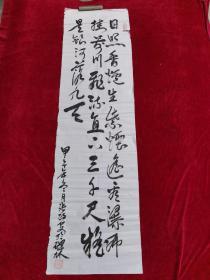 日照香炉生紫烟遥看瀑布
挂前川飞流直下三千尺疑
是银河落九天
甲
年冬月
林